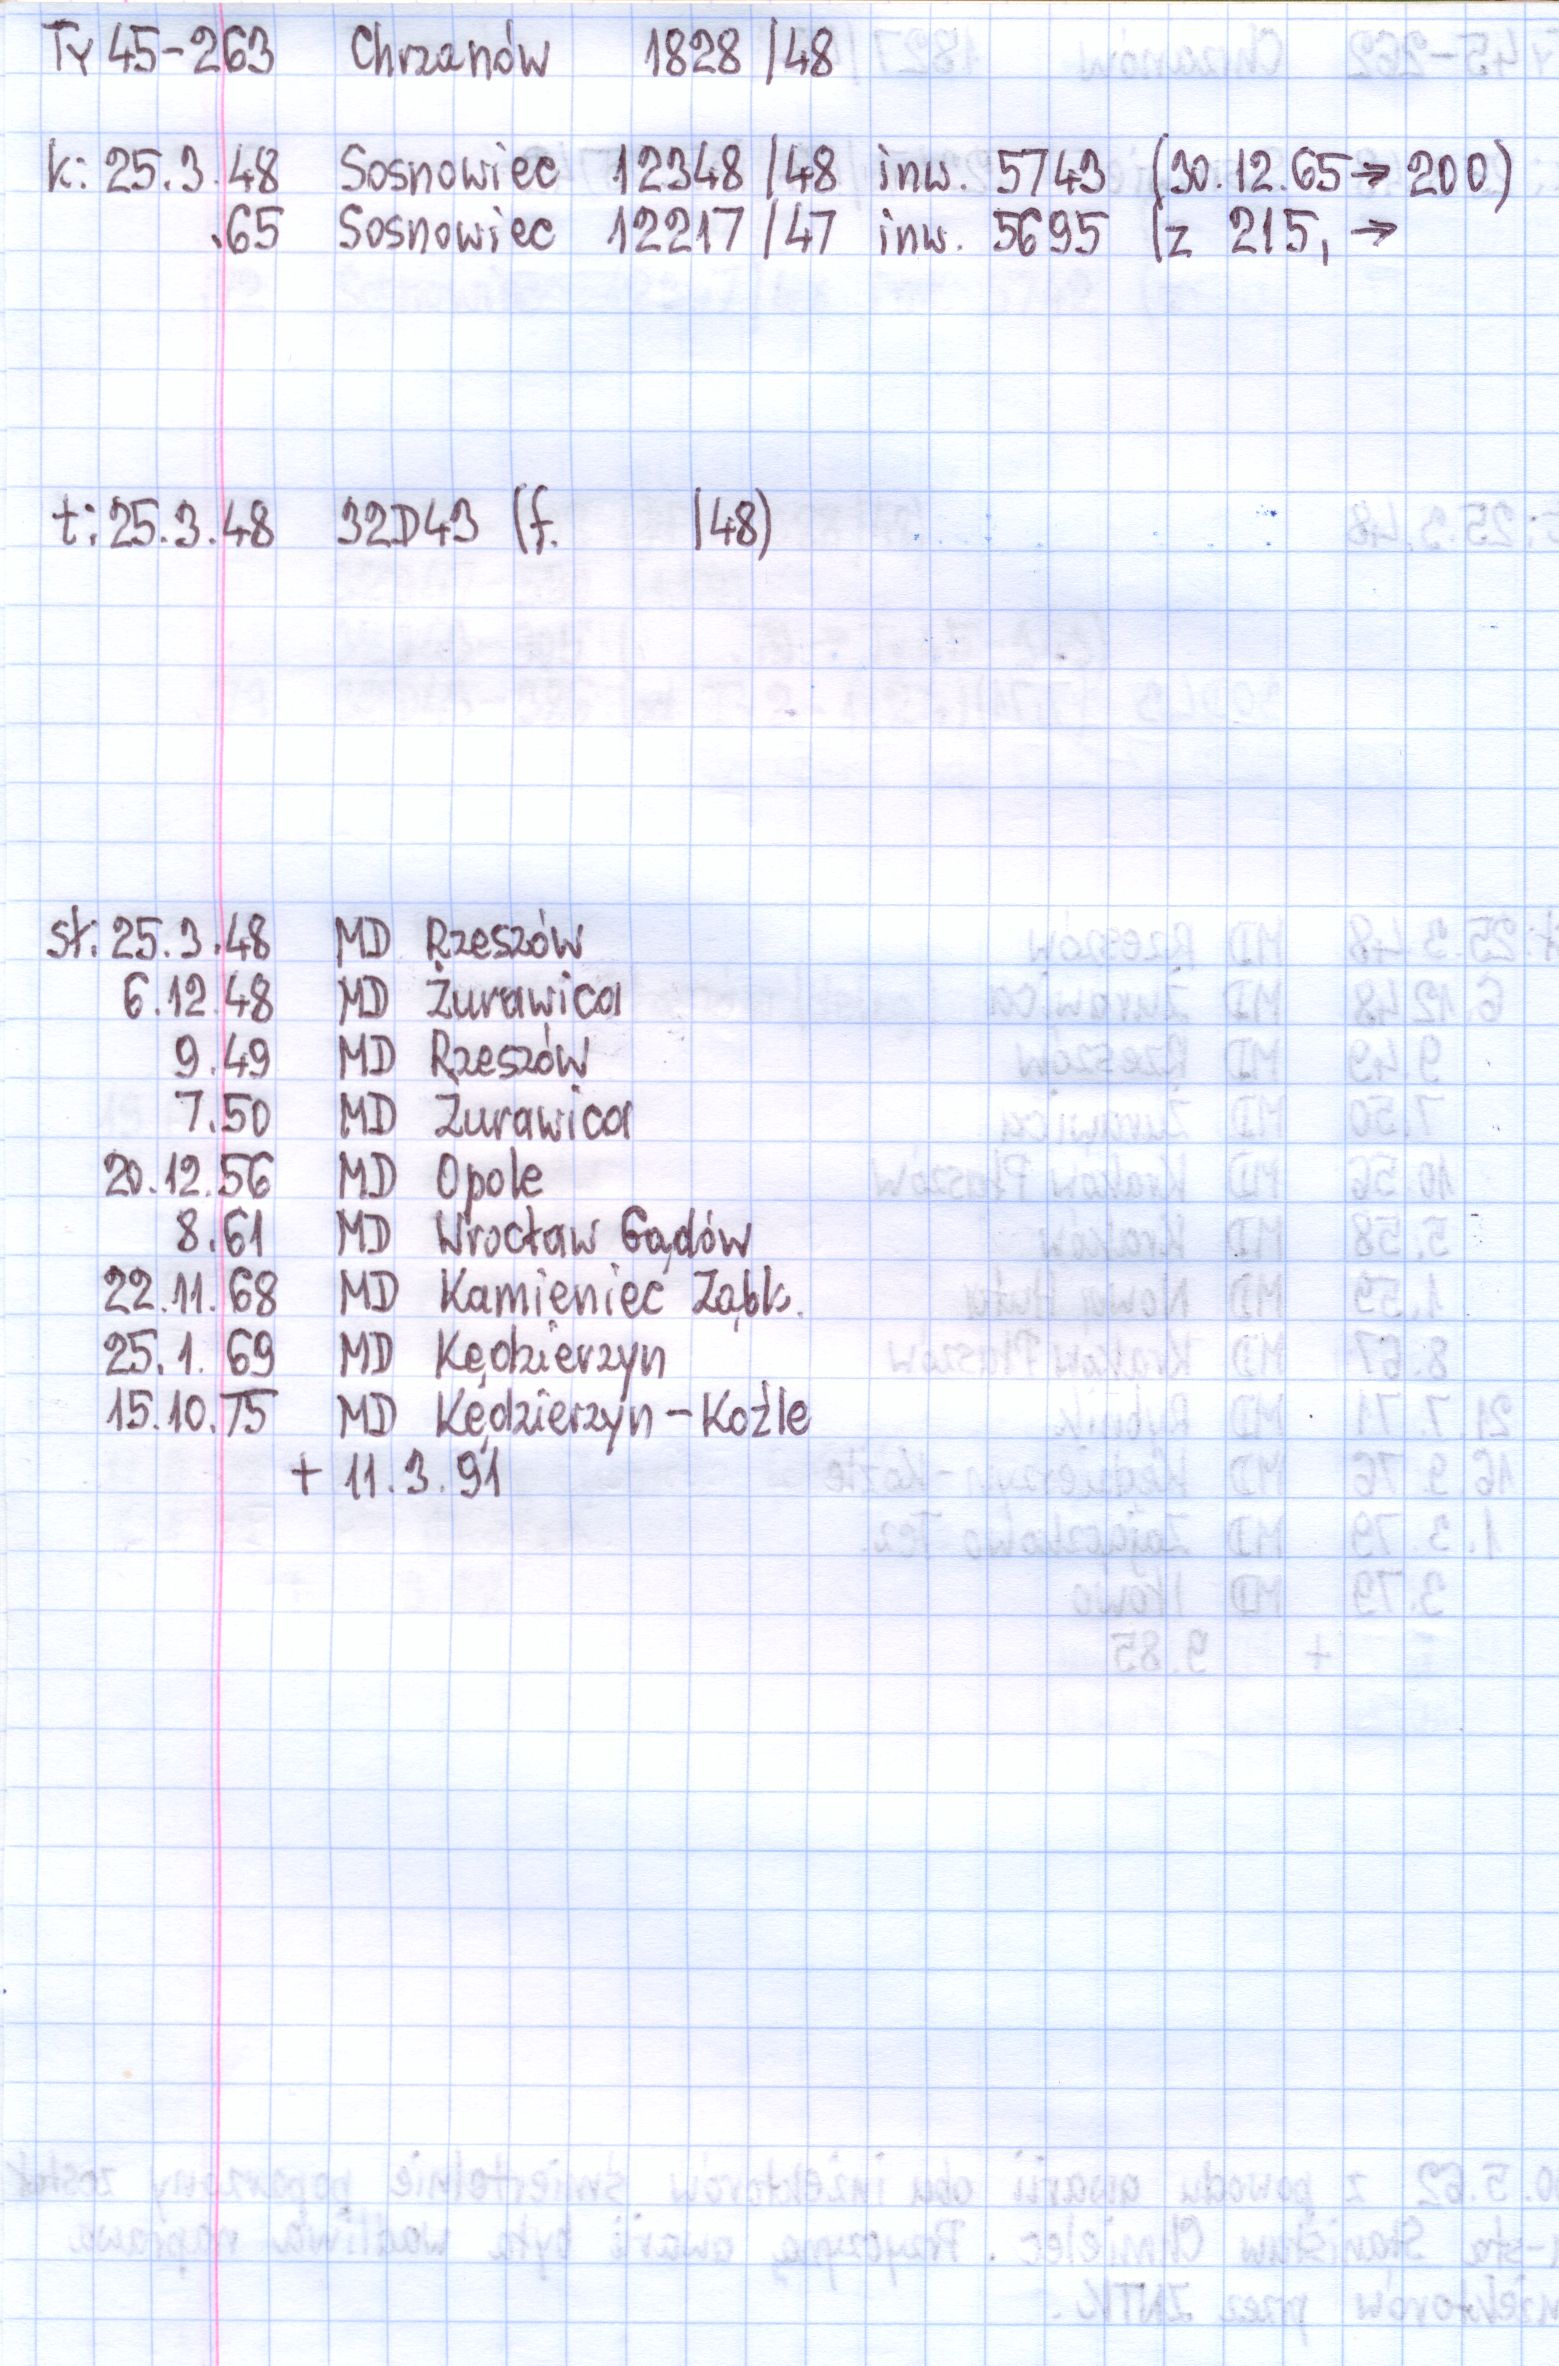 Ty 45-263 Chrzanów 1828/48
k: 25.3.48 Sosnowiec 12348/48 inw. 5743 (30.12.65→200)
.65 Sosnowiec 12217/47 inw. 5695 (z 215, →
t: 25.3.48 32D43 (f. /48)
st: 25.3.48 MD Rzeszów
6.12.48 MD Żurawica
9.49 MD Rzeszów
7.50 MD Żurawica
20.12.56 MD Opole
8.61 MD Wrocław Gądów
22.11.68 MD Kamieniec Ząbk.
25.1.69 MD Kędzierzyn
15.10.75 MD Kędzierzyn-Koźle
+ 11.3.91